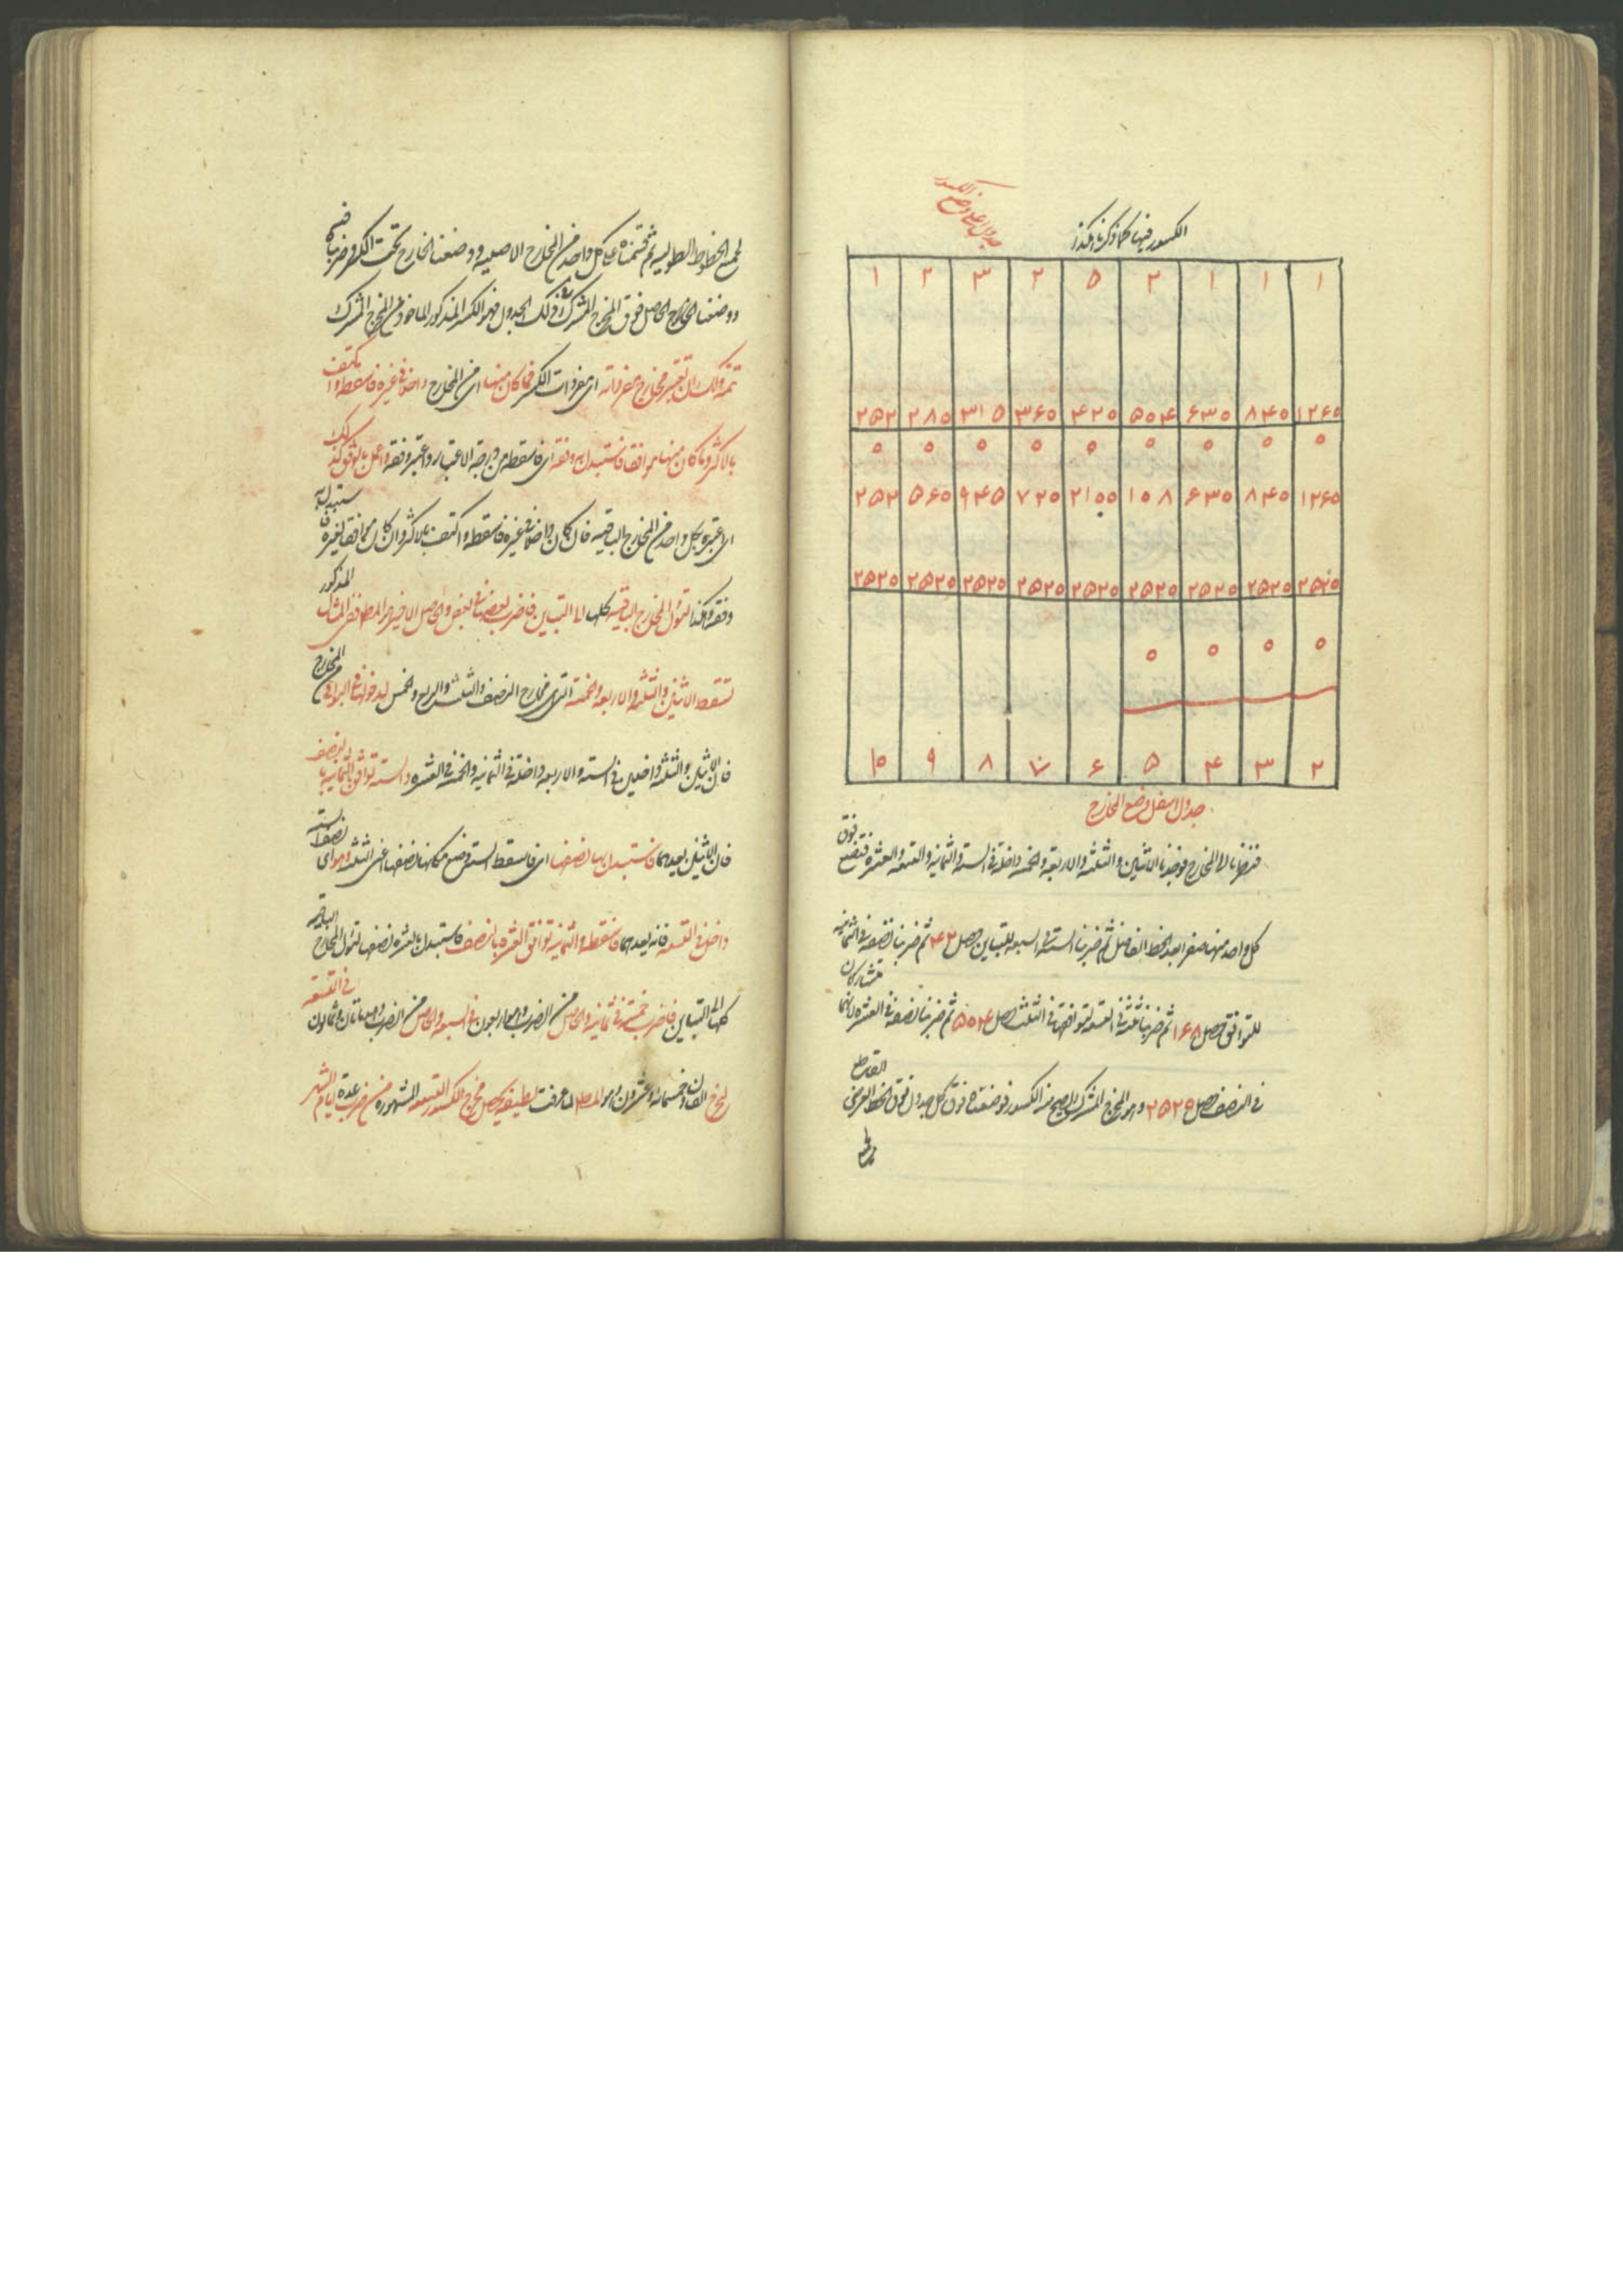 الكسور فيها كما ذكرنا هكذا
جدول اعلى وضع الكسور
١ ١ ١ ٢ ٥ ٢ ٣ ٢ ١
١٢۶٥ ٨۴٥ ۶٣٥ ٥٥۴ ۴٢٥ ٣۶٥ ٣١٥ ٢٨٥ ٢٥٢
٥ ٥ ٥ ٥ ٥ ٥ ٥ ٥ ٥
١٢۶٥ ٨۴٥ ۶٣٥ ١٥٨ ٢١٥٥ ٧٢٥ ٩۴٥ ٥۶٥ ٢٥٢
٢٥٢٥ ٢٥٢٥ ٢٥٢٥ ٢٥٢٥ ٢٥٢٥ ٢٥٢٥ ٢٥٢٥ ٢٥٢٥ ٢٥٢٥
٥ ٥ ٥ ٥
٢ ٣ ۴ ٥ ۶ ٧ ٨ ٩ ١٥
جدول اسفل وضع المخارج
فنظرنا الى المخارج فوجدنا الاثنين والثلثة والاربعة والخمسة داخلة في الستة والثمانية والتسعة والعشرة فنضع فوق
كل واحد منها صفرا بعد الخط الفاصل ثم ضربنا الستة في السبعة للتباين حصل ۴٢ ثم ضربنا نصفه في الثمانية
للتوافق حصل ١۶٨ ثم ضربنا ثلثه في التسعة لتوافقهما في الثلث حصل ٥٥۴ ثم ضربنا نصفه في العشرة لانهما متشاركان
في النصف حصل ٢٥٢٥ وهو المخرج المشترك الصحيح من الكسور فوضعناه فوق كل جدول فوق الخط العرضي القاطع
لجميع الخطوط الطولية ثم قسمناه على كل واحد من المخارج الاصلية ووضعنا الخارج تحت الكسر وضربناه فيه
ووضعنا الحاصل فوق المخرج المشترك في ذلك الجدول فهو الكسر المذكور الماخوذ من المخرج المشترك
تتمة ولك ان تعتبر مخارج مفرداته اى مفردات الكسر فما كان منها اى من المخارج داخلا في غيره فاسقطه واكتف
بالاكثر وما كان منها موافقا فاستبدل به وفقه اى فاسقطه من درجة الاعتبار واعتبر وفقه واعمل بالوفق كذلك
اى اعتبره بكل واحد من المخارج الباقية فان كان داخلا في غيره فاسقطه واكتف بالاكثر وان كان موافقا لغيره فاستبدل به
وفقه وهكذا لتؤل المخارج الباقية كلها الى التباين فاضرب بعضها في بعض والحاصل الاخير هو المطلوب ففي المثال المذكور
تسقط الاثنين والثلثة والاربعة والخمسة التي هي مخارج النصف والثلث والربع والخمس لدخولها في البواقي من المخارج
فان الاثنين والثلثة داخلين في الستة والاربعة داخلة في الثمانية والخمسة في العشرة والستة توافق الثمانية بالنصف
فان الاثنين يعدهما فاستبدل بها نصفها اى فاسقط الستة وضع مكانها نصفها اعنى الثلثة وهو اى نصف الستة
داخل في التسعة فانه يعدهما فاسقطه والثمانية توافق العشرة بالنصف فاستبدل بالعشرة نصفها لتؤل المخارج الباقية
كلها الى التباين فاضرب خمسة في ثمانية والحاصل من الضرب وهو اربعون في السبعة والحاصل من الضرب وهو ماتان وثمانون في التسعة
يخرج الفان وخمسمائة وعشرون وهو المطلوب لما عرفت لطيفة يحصل مخرج الكسور التسعة المشهورة من ضرب عدة ايام الشهر